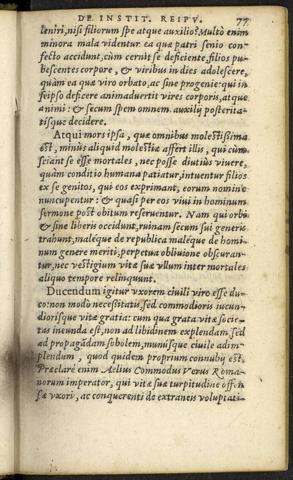 DE INSTIT. REIPV. 77
leniri, nisi filiorum spe atque auxilio? Multò enim
minora mala videntur ea quæ patri senio con-
fecto accidunt, cùm cernit se deficiente, filios pu-
bescentes corpore, & viribus in dies adolescere,
quàm ea quæ viro orbato, ac sine progenie: qui in
seipso deficere animaduertit vires corporis, atque
animi: & secum spem omnem auxilij posterita-
tisque decidere.
Atqui mors ipsa, quæ omnibus molestissima
est, minùs aliquid molestiæ affert illis, qui cùm
sciant se esse mortales, nec posse diutiùs viuere,
quàm conditio humana patiatur, intuentur filios
ex se genitos, qui eos exprimant, eorum nomine
nuncupentur: & quasi per eos viui in hominum
sermone post obitum reseruentur. Nam qui orbi
& sine liberis occidunt, ruinam secum sui generis
trahunt, maléque de republica maléque de homi-
num genere meriti, perpetua obliuione obscuran-
tur, nec vestigium vitæ suæ vllum inter mortales
aliquo tempore relinquunt.
Ducendam igitur vxorem ciuili viro esse du-
co: non modò necessitatis, sed commodioris iucun-
diorisque vitæ gratia: cum qua grata vitæ socie-
tas ineunda est, non ad libidinem explendam, sed
ad propagādam sobolem, munúsque ciuile adim-
plendum, quod quidem proprium connubij est.
Præclarè enim Aelius Commodus Verus Roma-
norum imperator, qui vitæ suæ turpitudine offen
sæ vxori, ac conquerenti de extraneis voluptati-